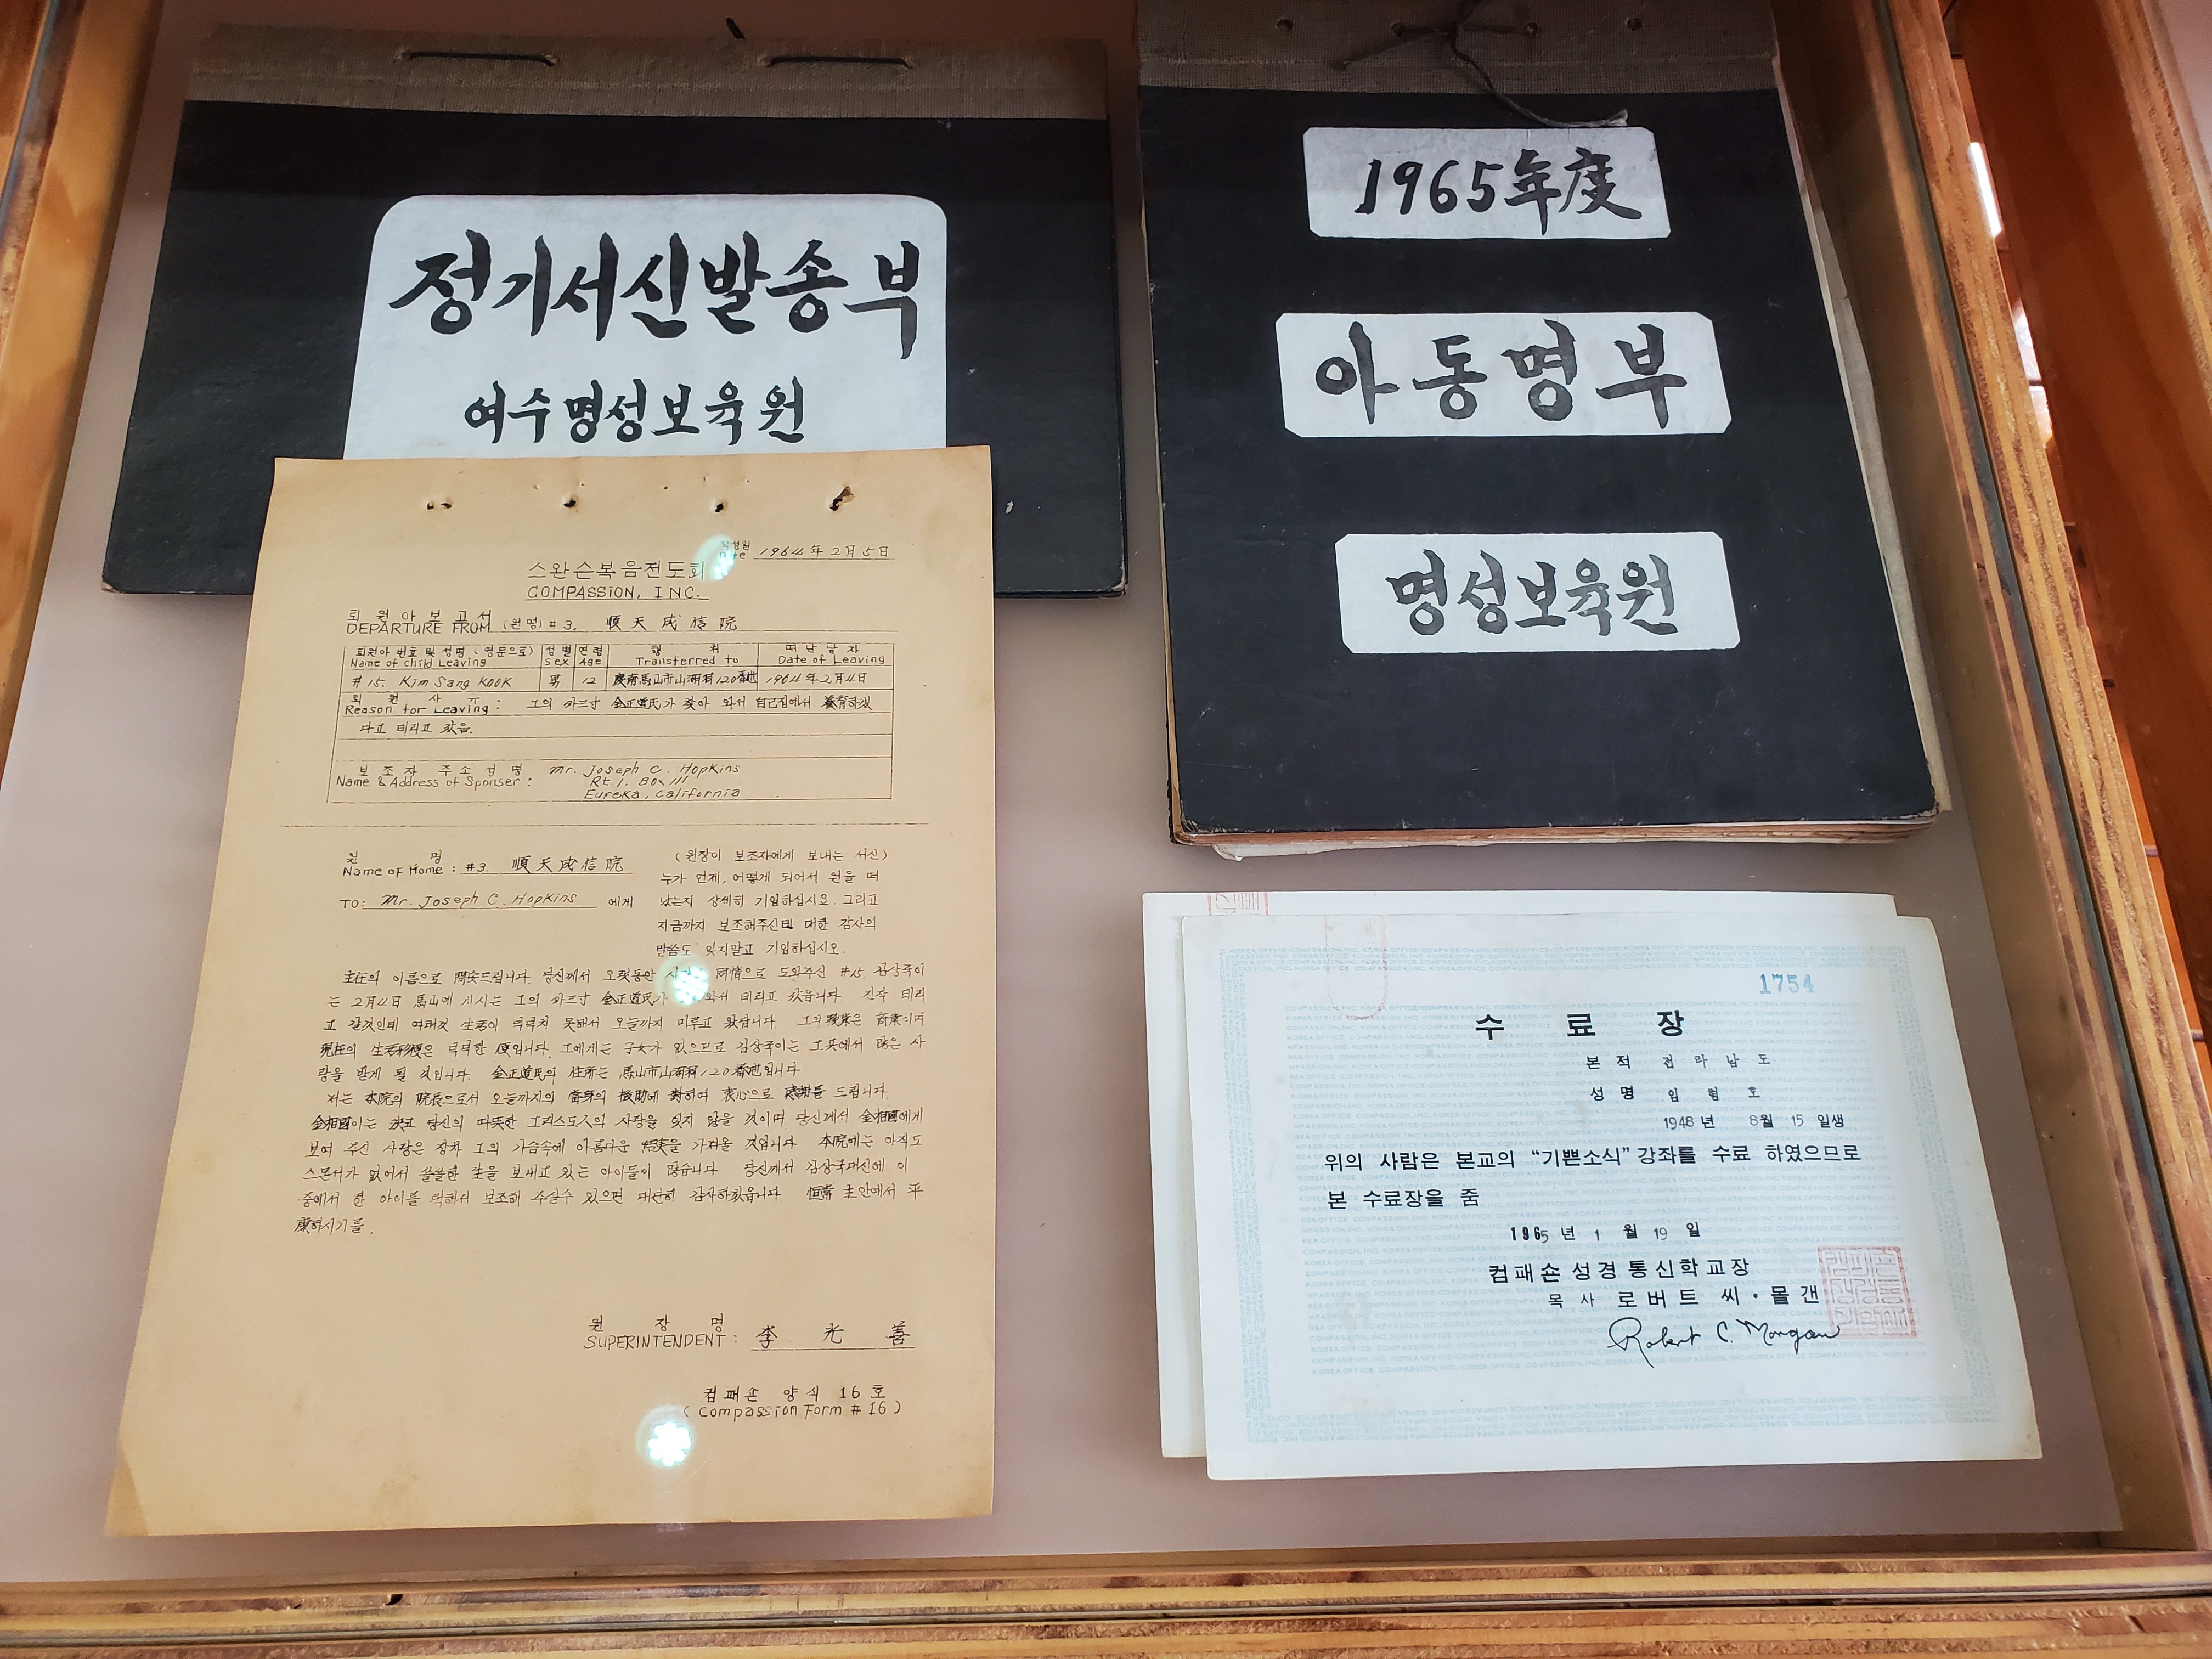 정기서신발송부
여수명성보육원
1965年度
아동명부
명성보육원
작성일
Date 1964年 2月 5日
스완슨복음전도회
COMPASSION, INC.
퇴원아보고서
DEPARTURE FROM (원명) #3. 順天成信院
퇴원아 번호 및 성명 (영문으로) 성별 연령 행처 떠난날자
Name of child Leaving Sex Age Transferred to Date of Leaving
#15. Kim Sang Kook 男 12 慶南馬山市山湖洞120番地 1964年2月4日
퇴원사유
Reason for Leaving : 그의 外三寸 金正道氏가 찾아 와서 自己집에서 養育하겠
다고 데리고 갔음.
보조자 주소 성명 Mr. Joseph C. Hopkins
Name & Address of Sponser : Rt. 1, Box 111
Eureka, California
원명
Name of Home : #3. 順天成信院
TO: Mr. Joseph C. Hopkins 에게
(원장이 보조자에게 보내는 서신)
누가 언제, 어떻게 되어서 원을 떠
났는지 상세히 기입하십시오. 그리고
지금까지 보조해주신데 대한 감사의
말씀도 잊지말고 기입하십시오.
主任의 이름으로 問安드립니다. 당신께서 오랫동안 同情으로 도와주신 #15 김상국이
는 2月4日 馬山에 계시는 그의 外三寸 金正道氏가 와서 데리고 갔읍니다. 진작 데리
고 갈것인데 여태껏 生活이 넉넉치 못해서 오늘까지 미루고 왔답니다. 그의 職業은 商業이며
現在의 生活形便은 넉넉한 便입니다. 그에게는 子女가 없으므로 김상국이는 그곳에서 많은 사
랑을 받게 될 것입니다. 金正道氏의 住所는 馬山市山湖洞120番地입니다
저는 本院의 院長으로서 오늘까지의 當身의 援助에 對하여 衷心으로 感謝를 드립니다.
金相國이는 決코 당신의 따뜻한 그리스도人의 사랑을 잊지 않을 것이며 당신께서 金相國에게
보여 주신 사랑은 장차 그의 가슴속에 아름다운 結実을 가져올 것입니다. 本院에는 아직도
스폰서가 없어서 쓸쓸한 生을 보내고 있는 아이들이 많습니다. 당신께서 김상국대신에 이
중에서 한 아이를 택해서 보조해 주실수 있으면 대단히 감사하겠읍니다. 恒常 主안에서 平
康하시기를.
원장명
SUPERINTENDENT : 李光善
컴패숀 양식 16호
(Compassion Form #16)
1754
수료장
본적 전라남도
성명 임형호
1948년 8월 15일생
위의 사람은 본교의 "기쁜소식" 강좌를 수료 하였으므로
본 수료장을 줌
1965년 1월 19일
컴패숀 성경 통신학교장
목사 로버트 씨·몰갠
Robert C. Morgan